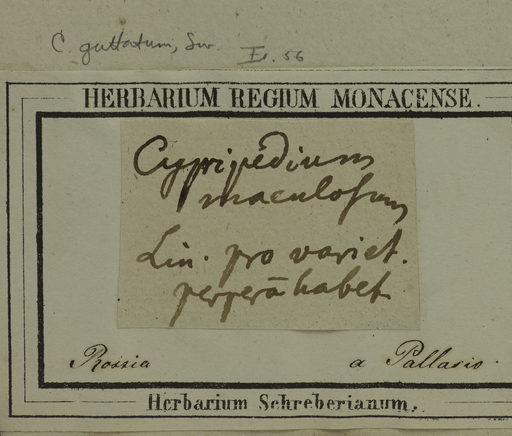 C. guttatum, Sw.
Fr. 56
HERBARIUM REGIUM MONACENSE.
Cypripédium
maculosum
Lin. pro variet.
perperā habet
Rossia a Pallasio.
Herbarium Schreberianum.